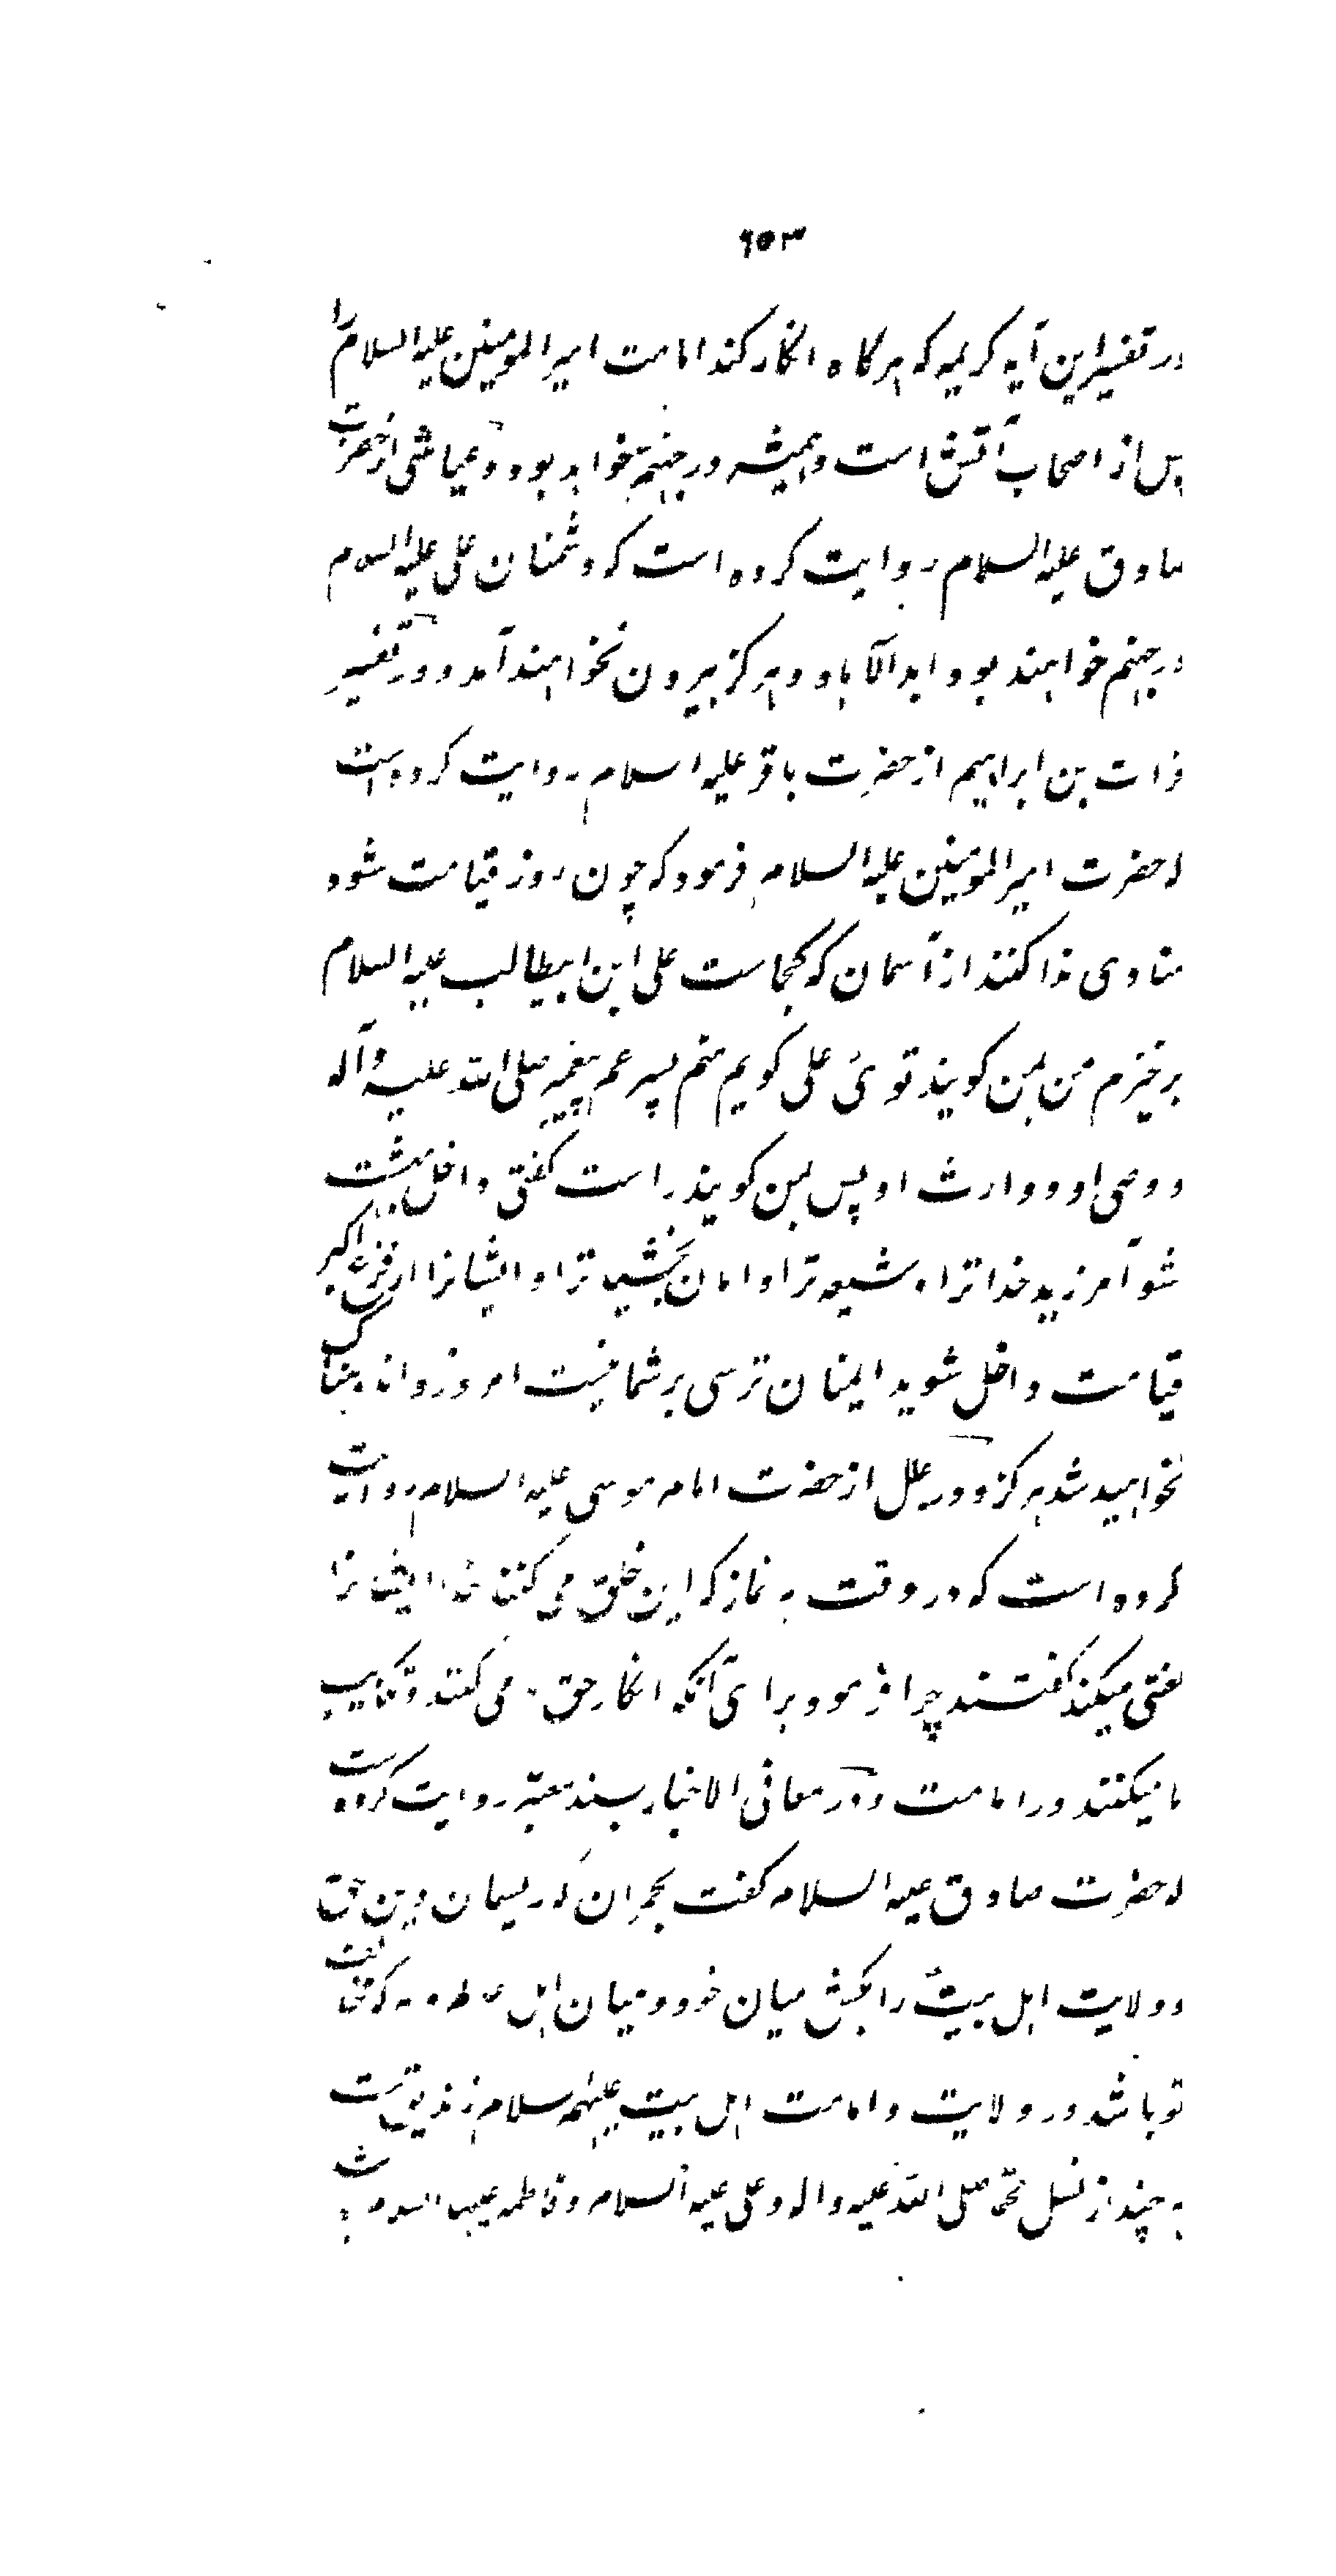 ٦٥٣
در تفسیر این آیه کریمه که هرکاه انکار کند امامت امیر المومنین علیه السلام را
پس از اصحاب آتش است و همیشه در جهنم خواهد بود و عیاشی از حضرت
صادق علیه السلام روایت کرده است که دشمنان علی علیه السلام
در جهنم خواهند بود ابد الآباد و هرکز بیرون نخواهند آمد و در تفسیر
فرات بن ابراهیم از حضرت باقر علیه السلام روایت کرده است
که حضرت امیر المومنین علیه السلام فرمود که چون روز قیامت شود
منادی ندا کنند از آسمان که کجاست علی ابن ابیطالب علیه السلام
برخیزم من بمن کویند توئی علی کویم منم پسر عم پیغمبر صلی الله علیه وآله
و وصی او و وارث او پس بمن کویند راست کفتی داخل بهشت
شو آمرزید خدا ترا و شیعه ترا و امان بخشید ترا و ایشانرا از فزع اکبر
قیامت داخل شوید ایمنان ترسی بر شما نیست امروز و اندوهناک
نخواهید شد هرکز و در علل از حضرت امام موسی علیه السلام روایت
کرده است که در وقت هر نماز که این خلق می کنند خدا ایشانرا
لعنتی میکند کفتند چرا فرمود برای آنکه انکار حق می کنند و تکذیب
ما میکنند در امامت و در معانی الاخبار بسند معتبر روایت کرده است
که حضرت صادق علیه السلام کفت بحمران که ریسمان دین حق
و ولایت اهل بیت را بکش میان خود و میان اهل که مخالفت
تو باشد در ولایت و امامت اهل بیت علیهم السلام زندیق است
هر چند از نسل محمد صلی الله علیه واله و علی علیه السلام و فاطمه علیها السلام باشد